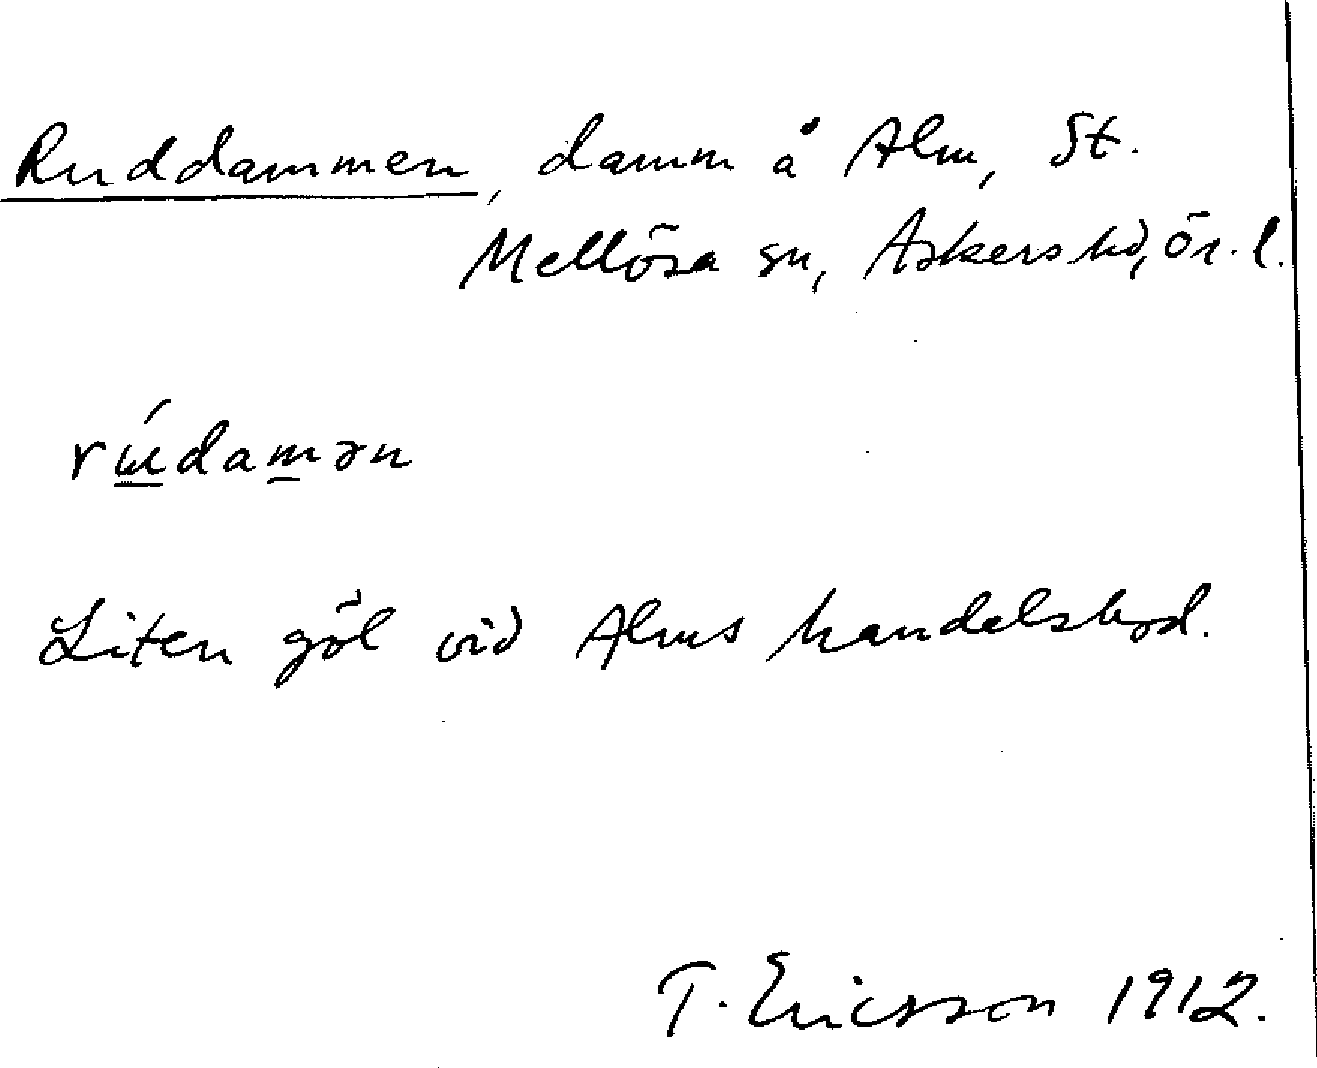 Ruddammen, damm å Alm, St.
Mellösa sn, Askers hd, Ör. l.
rɯ́damən
Liten göl vid Alms handelsbod.
T. Ericsson 1912.